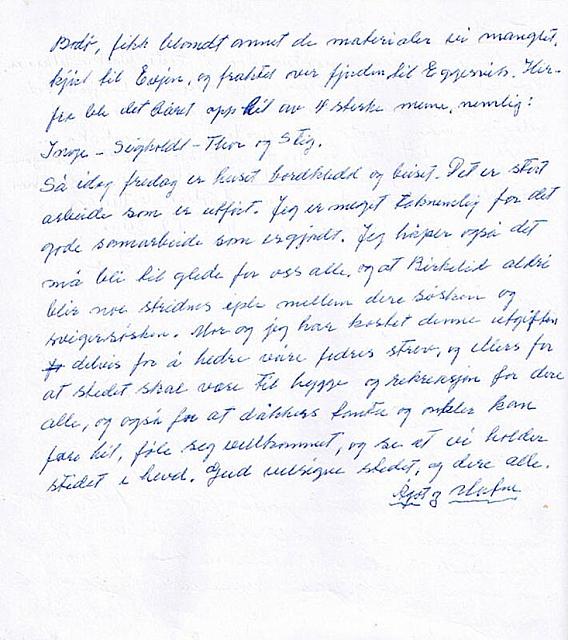 Bodø, fikk blandt annet de materialer vi manglet,
kjørt til Evjen, og fraktet over fjorden til Eggesvik. Her-
fra ble det båret opp hit av 4 sterke menn, nemlig:
Inge - Sigholdt - Thor og Stig.
Så idag fredag er huset bordkledd og beiset. Det er stort
arbeide som er utført. Jeg er meget taknemlig for det
gode samarbeide som er gjort. Jeg håper også det
må bli til glede for oss alle, og at Birkelid aldri
blir noe stridens eple mellem dere søsken og
svigersøsken. Mor og jeg har kostet denne utgiften
delvis for å hedre våre fedres strev, og ellers for
at stedet skal være til hygge og rekreasjon for dere
alle, og også for at dåkkers tanter og onkler kan
fare hit, føle seg vellkommet, og se at vi holder
stedet i hevd. Gud velsigne stedet, og dere alle.
og